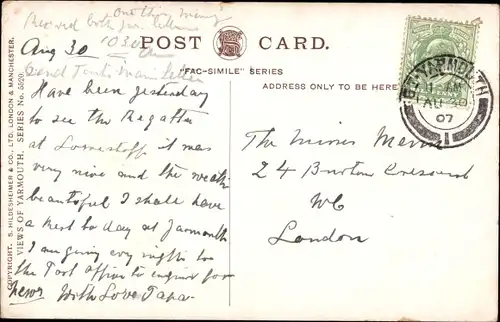 one this morning
Received both your letters
Aug 30 1030 am
POST CARD.
"FAC-SIMILE" SERIES
ADDRESS ONLY TO BE HERE
Have been yesterday
to see the Regatta
at Lowestoff it was
very nice and the weath
beautiful I shall have
a rest to day at Yarmouth
I am going every night to
the Post Office to enquire for
news With Love Papa
The Misses
24 Burton Crescent
WC
London
GT YARMOUTH
AU 30
07
1
COPYRIGHT. S. HILDESHEIMER & CO., LTD. LONDON & MANCHESTER.
VIEWS OF YARMOUTH. SERIES No. 5320.